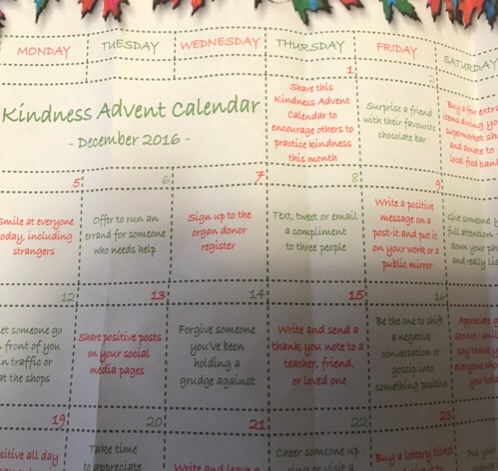 MONDAY TUESDAY WEDNESDAY THURSDAY FRIDAY SATURDAY
Kindness Advent Calendar
- December 2016 -
1
Share this
Kindness Advent
Calendar to
encourage others to
practice kindness
this month
2
Surprise a friend
with their favourite
chocolate bar
Buy a few extra
items during yo
supermarket sho
and donate to
local food ban
5
Smile at everyone
today, including
strangers
6
Offer to run an
errand for someone
who needs help
7
Sign up to the
organ donor
register
8
Text, tweet or email
a compliment
to three people
9
Write a positive
message on a
post-it and put it
on your work or a
public mirror
Give someone
full attention
down your ph
and really lis
12
et someone go
n front of you
in traffic or
at the shops
13
Share positive posts
on your social
media pages
14
Forgive someone
you've been
holding a
grudge against
15
Write and send a
thank you note to a
teacher, friend,
or loved one
16
Be the one to shift
a negative
conversation or
gossip into
something positive
Appreciate g
service - smil
say thank y
everyone who
you toda
19
sitive all day
20
Take time
to appreciate
21
Write and leave a
22
Cheer someone up
23
Buy a lottery ticket